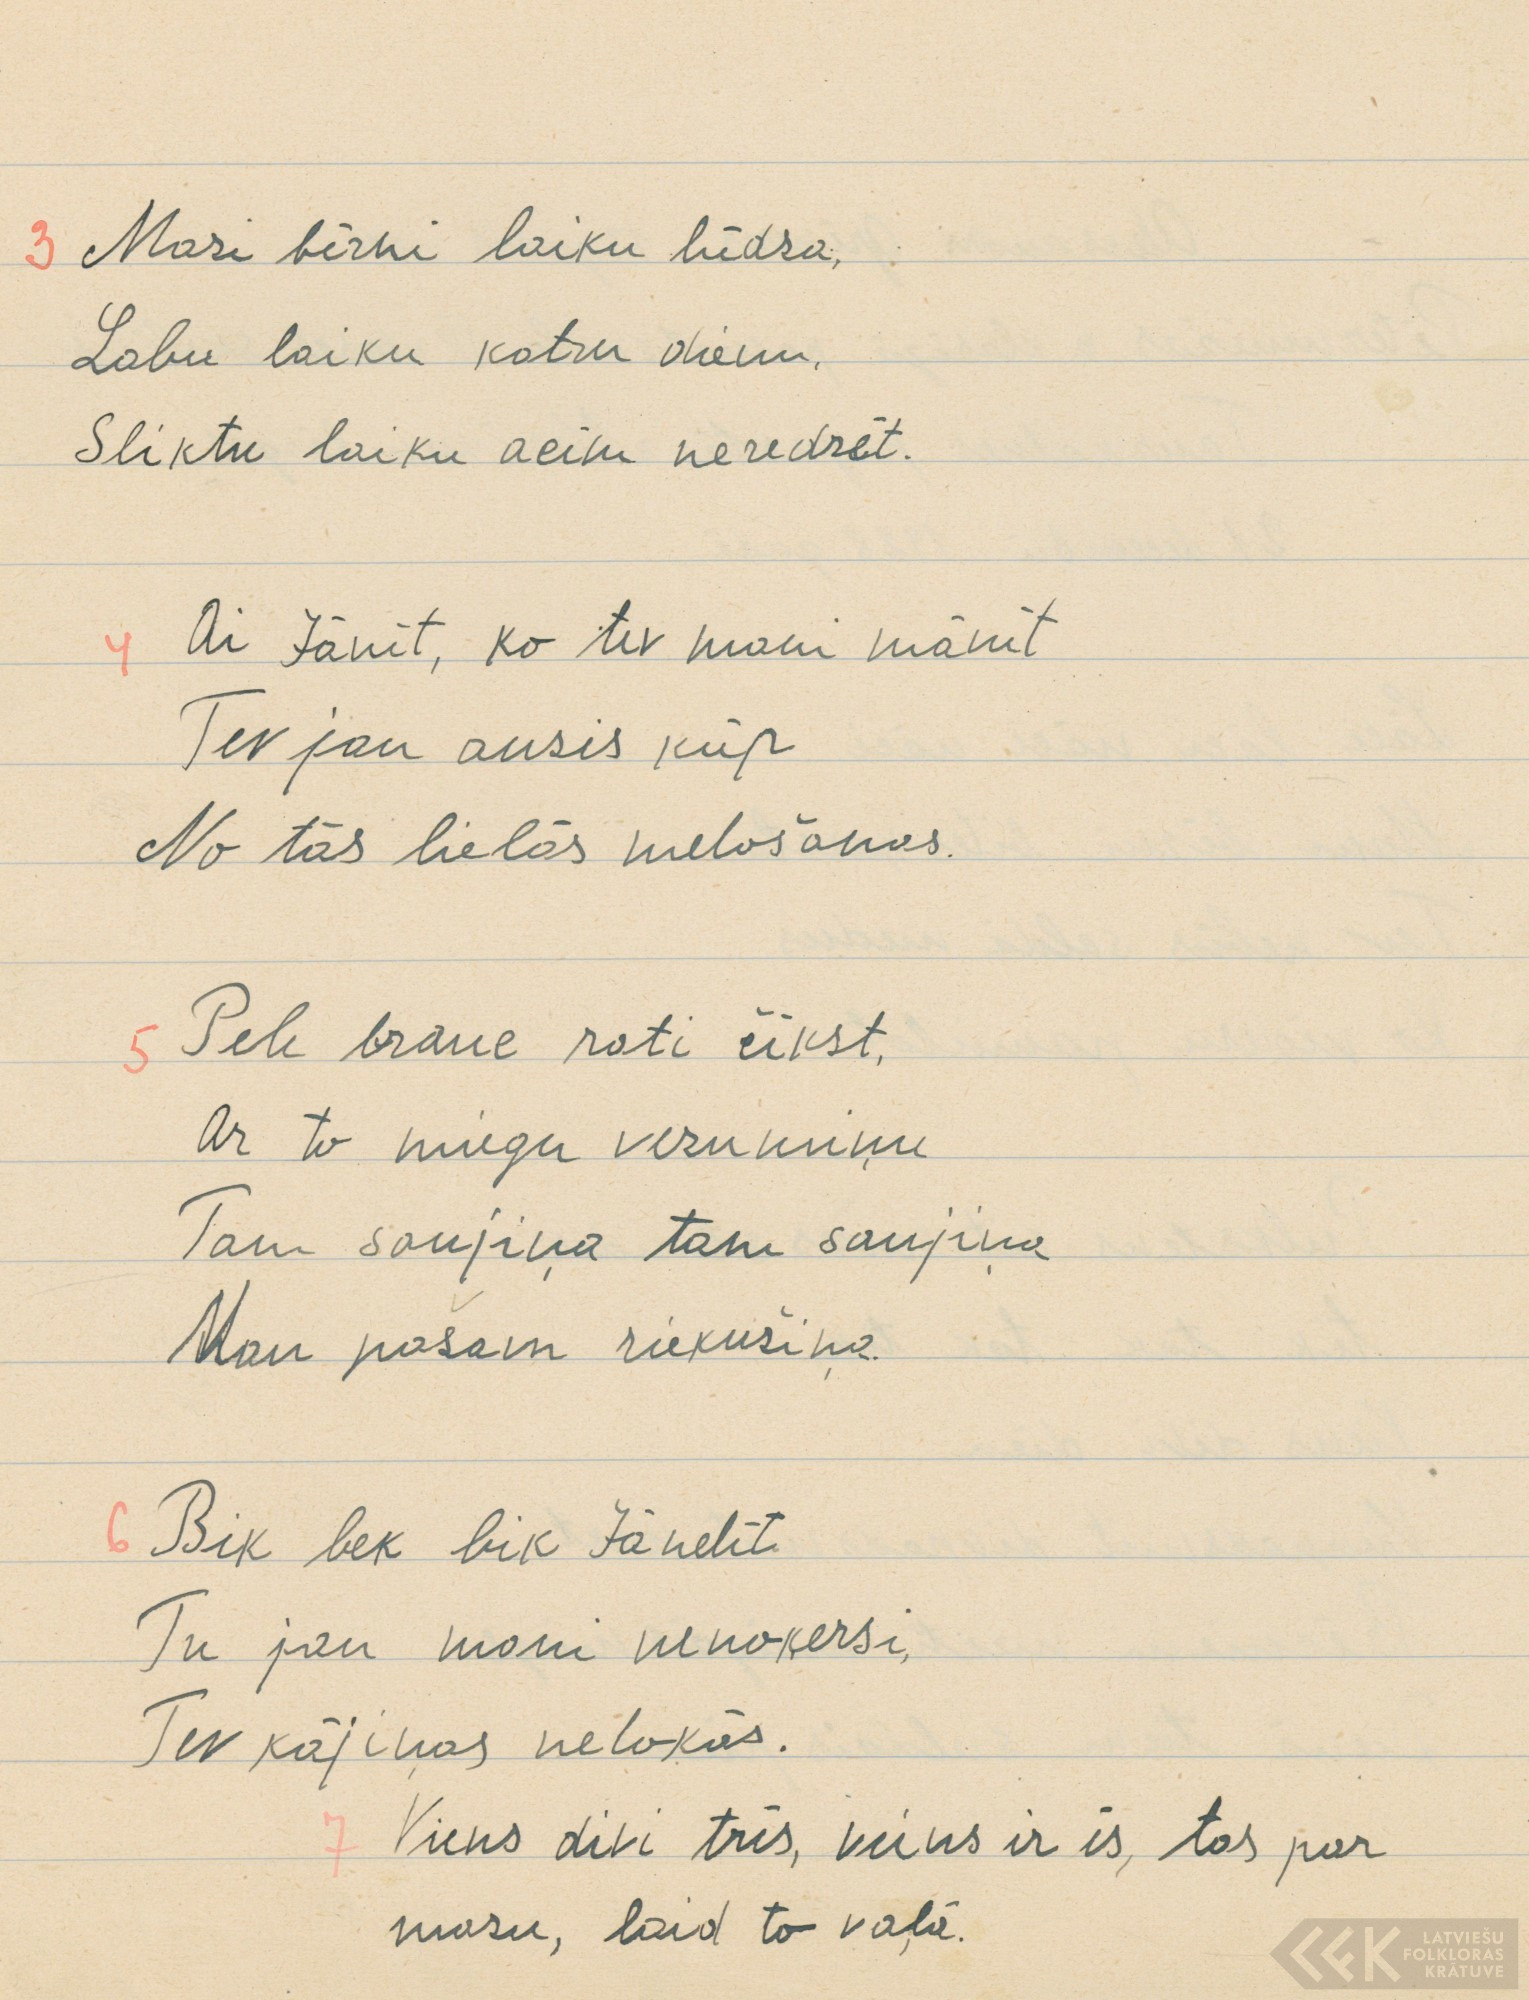 3 Mazi bērni laiku lūdza,
Labu laiku katru dienu,
Sliktu laiku acim neredzēt.
4 Ai Jānīt, ko tev mani mānīt
Tev jau ausis kūp
No tās lielās melošanas.
5 Pele brauc rati čīkst,
Ar to miegu vezumiņu
Tam saujiņa tam saujiņa
Man pašam riekušiņa.
6 Bik bek bik Jānelīt
Tu jau mani nenoķersi,
Tev kājiņas nelokās.
7 Viens divi trīs, viens ir īs, tas par
mazu, laid to vaļā.
LATVIEŠU
FOLKLORAS
KRĀTUVE